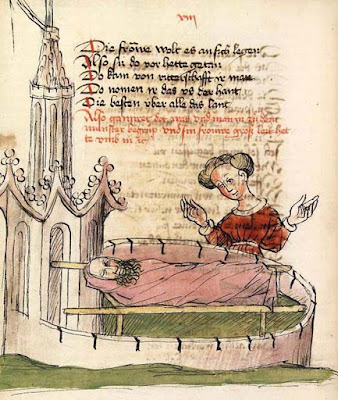 viii
Die fröwe wolt es an sich legen
Also su do vor hette getan
Do kam von ritterschafft ir man
Do nomen ir das vs der hant
Die besten vber alle das lant
Also gamuret der aran vnd man in zu dem
munster begrup vnd sin frouwe groß leit het
te vmb in